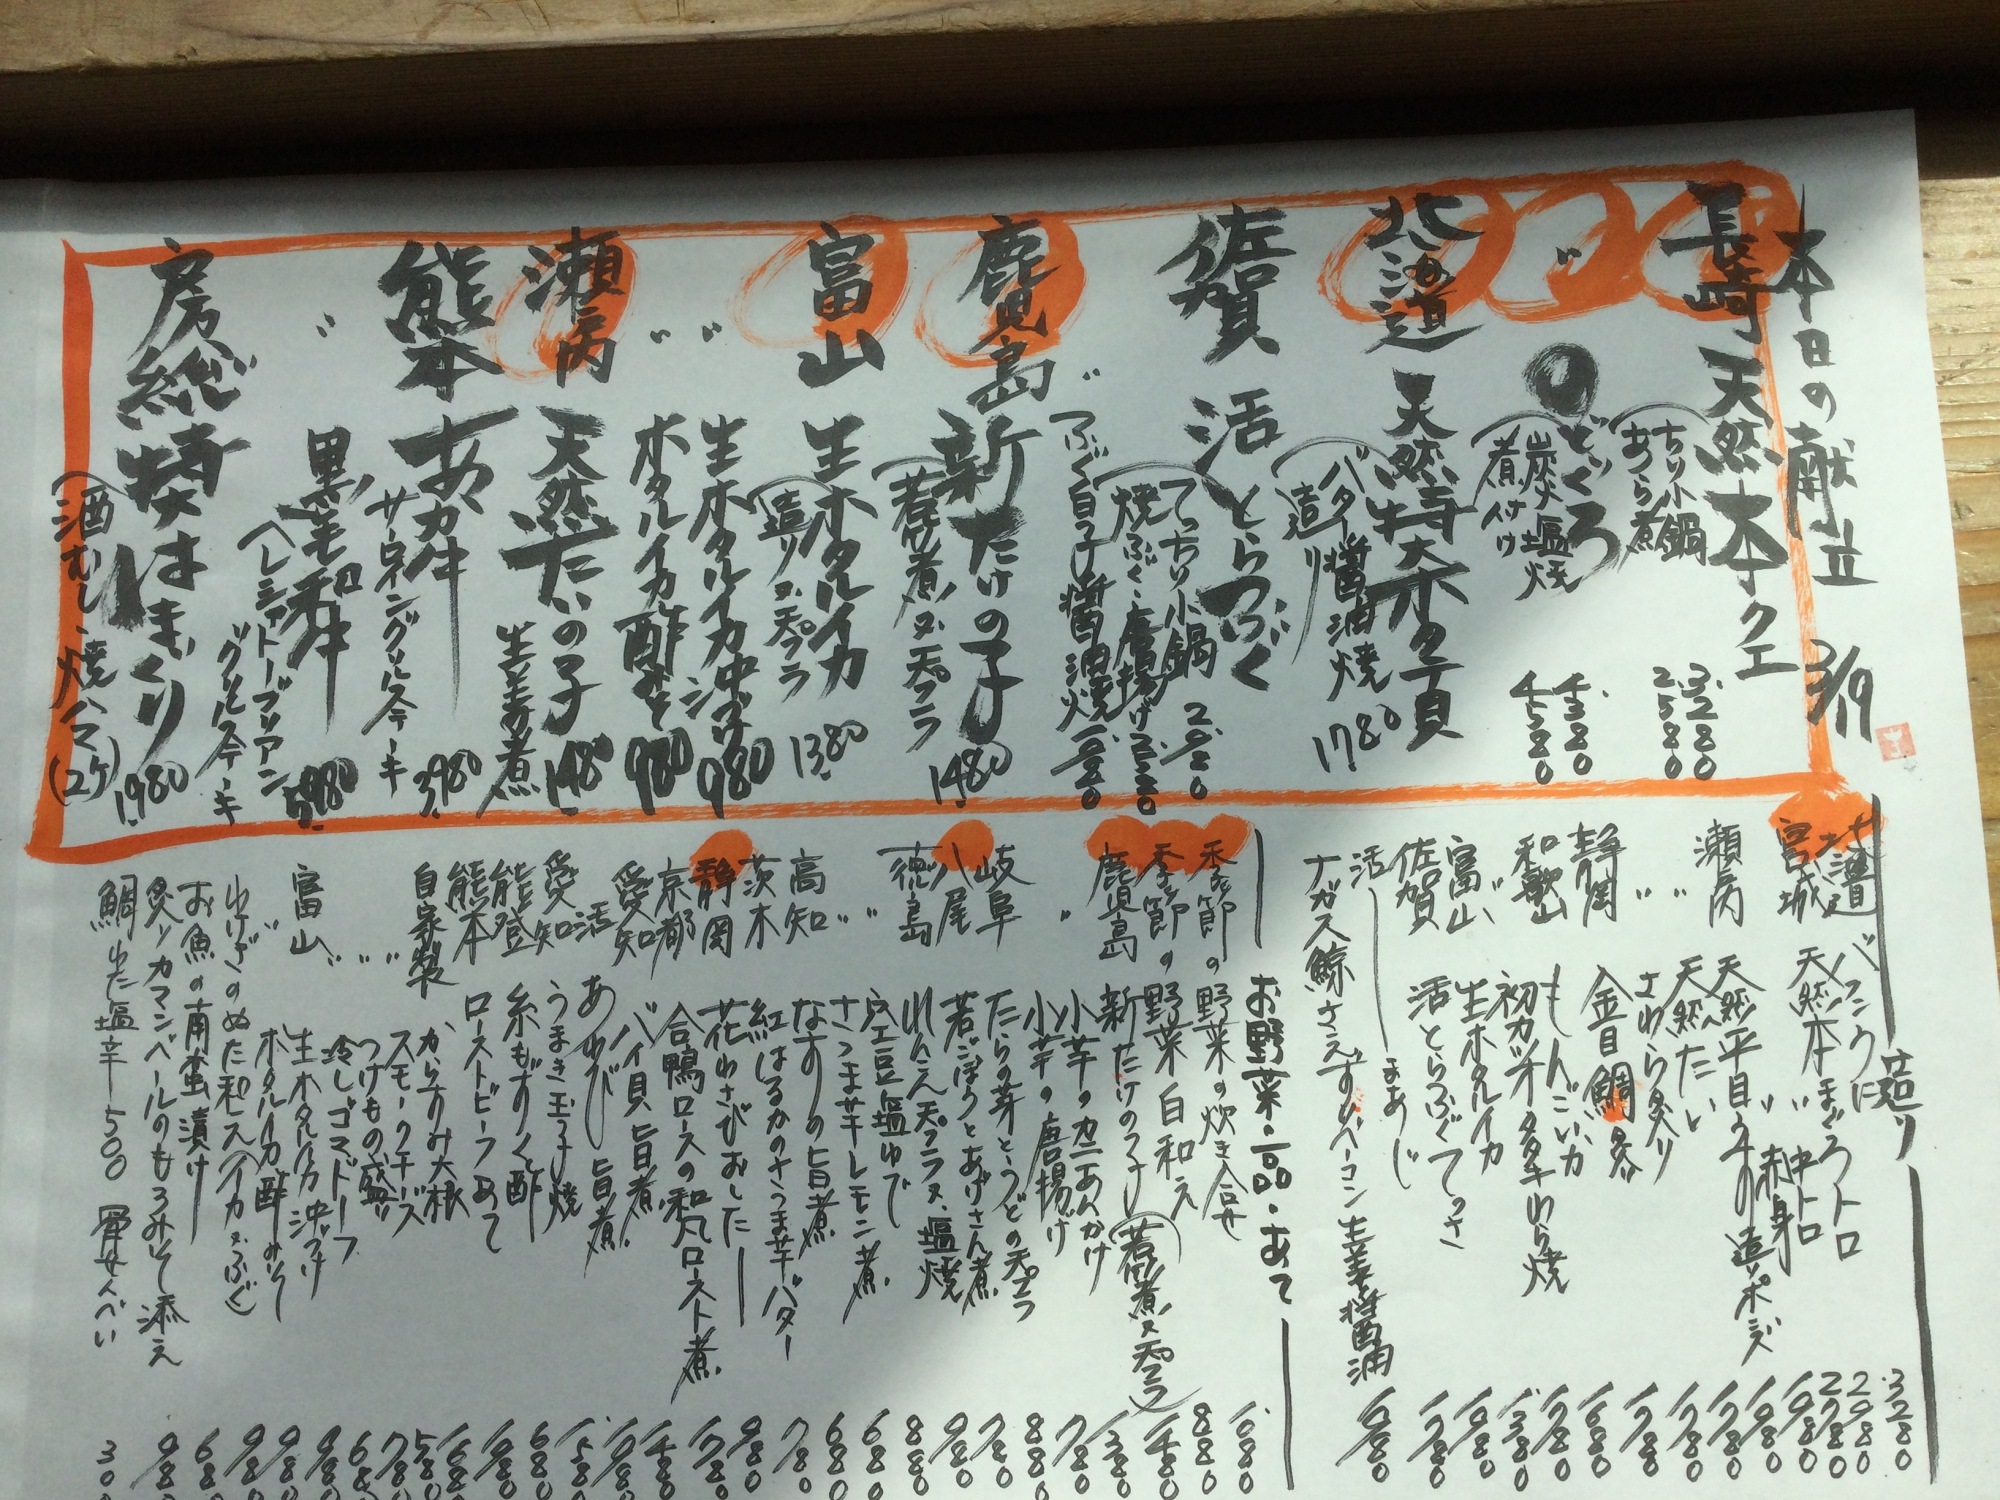 本日の献立 3/19
長崎 天然本クエ
ちり小鍋 3.280
あら煮 2.580
〃 のどくろ
炭火塩焼 4.380
煮付け 4.580
北海道 天然特大ホタテ貝
バター醤油焼
造り 1.780
佐賀 活とらふぐ
てっちり小鍋
焼ふぐ・唐揚げ
〃 ふぐ白子醤油焼
鹿児島 新たけの子
若煮又天プラ 1480
富山 生ホタルイカ
造り又天プラ 1380
〃 生ホタルイカ沖づけ 980
〃 ホタルイカ酢みそ 980
瀬戸内 天然たいの子
生姜煮 1480
熊本 あか牛
サーロイングリルステーキ 3.980
〃 黒毛和牛
ヘレシャトーブリアン
グリルステーキ 5.980
房総 特大はまぐり
(酒むし・焼ハマ(2ケ) 1.980
造り
北海道 バフンウニ 3280
宮城 天然本まぐろトロ 2980
〃 中トロ 2780
〃 赤身 1980
瀬戸内 天然平目うすの造りポン酢 1980
〃 天然たい 1780
〃 さわら炙り 1780
静岡 金目鯛炙り
もんごいか
和歌山 初カツオタタキわら焼
富山 生ホタルイカ
佐賀 活とらふぐてっさ
活 まあじ
ナガス鯨さえずりベーコン生姜醤油
お野菜・一品・あて
季節の野菜の炊き合せ 1.080
季節の野菜白和え 880
鹿児島 新たけの子(若煮又天プラ) 1480
小芋のカニあんかけ 1380
〃 小芋の唐揚げ 780
岐阜 たらの芽とうどの天プラ 880
八尾 若ごぼうとあげさん煮 780
徳島 れんこん天プラ又塩焼 980
〃 空豆塩ゆで 880
〃 さつま芋レモン煮 680
高知 なすの旨煮 680
茨木 紅はるかのさつま芋バター 780
静岡 花わさびおひたし 980
京都 合鴨ロースの和風ロースト煮 1780
愛知 バイ貝旨煮 1480
活 あわび旨煮
愛知 うまき玉子焼
能登 糸もずく酢 680
熊本 ローストビーフあて
自家製 からすみ大根
〃 スモークチーズ
〃 つけもの盛り
〃 冷しゴマドーフ
富山 生ホタルイカ沖づけ 980
〃 ホタルイカ酢みそ 980
わけぎのぬた和え(イカ又ふぐ) 980
お魚の南蛮漬け 680
炙りカマンベールのもろみそ添え 980
鯛わた塩辛 500 骨せんべい 30